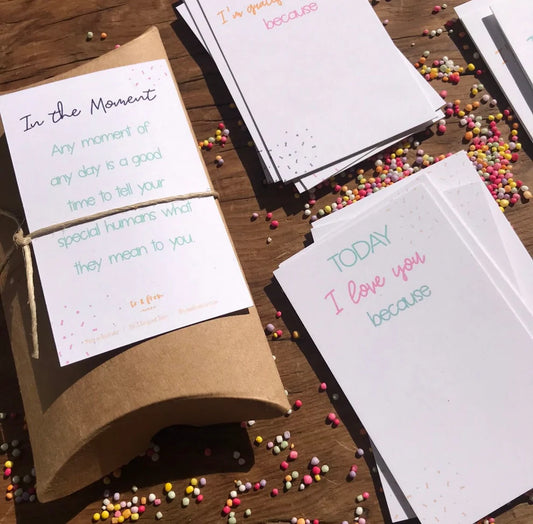 In the Moment
Any moment of
any day is a good
time to tell your
special humans what
they mean to you.
I'm
because
TODAY
I love you
because